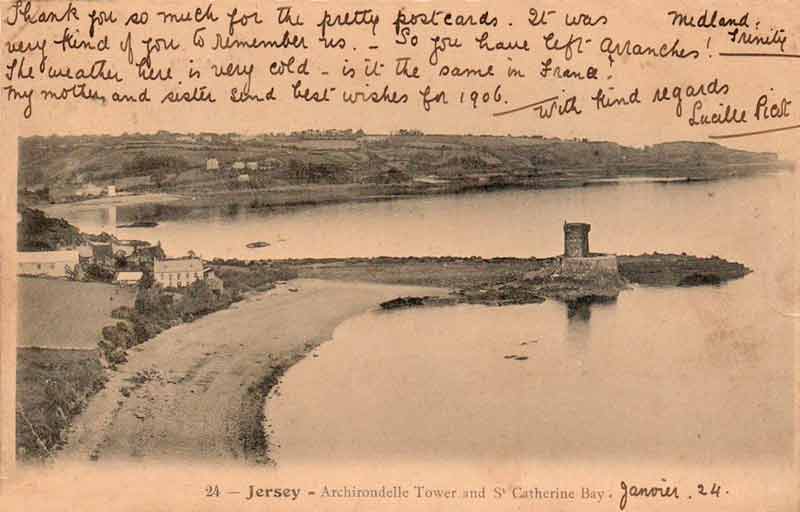 Thank you so much for the pretty postcards. It was
very kind of you to remember us. - So you have left Avranches!
The weather here is very cold - is it the same in France?
My mother and sister send best wishes for 1906.
With kind regards
Lucille Picot
Midland:
Trinity
24 - Jersey - Archirondelle Tower and St Catherine Bay.
Janvier. 24.